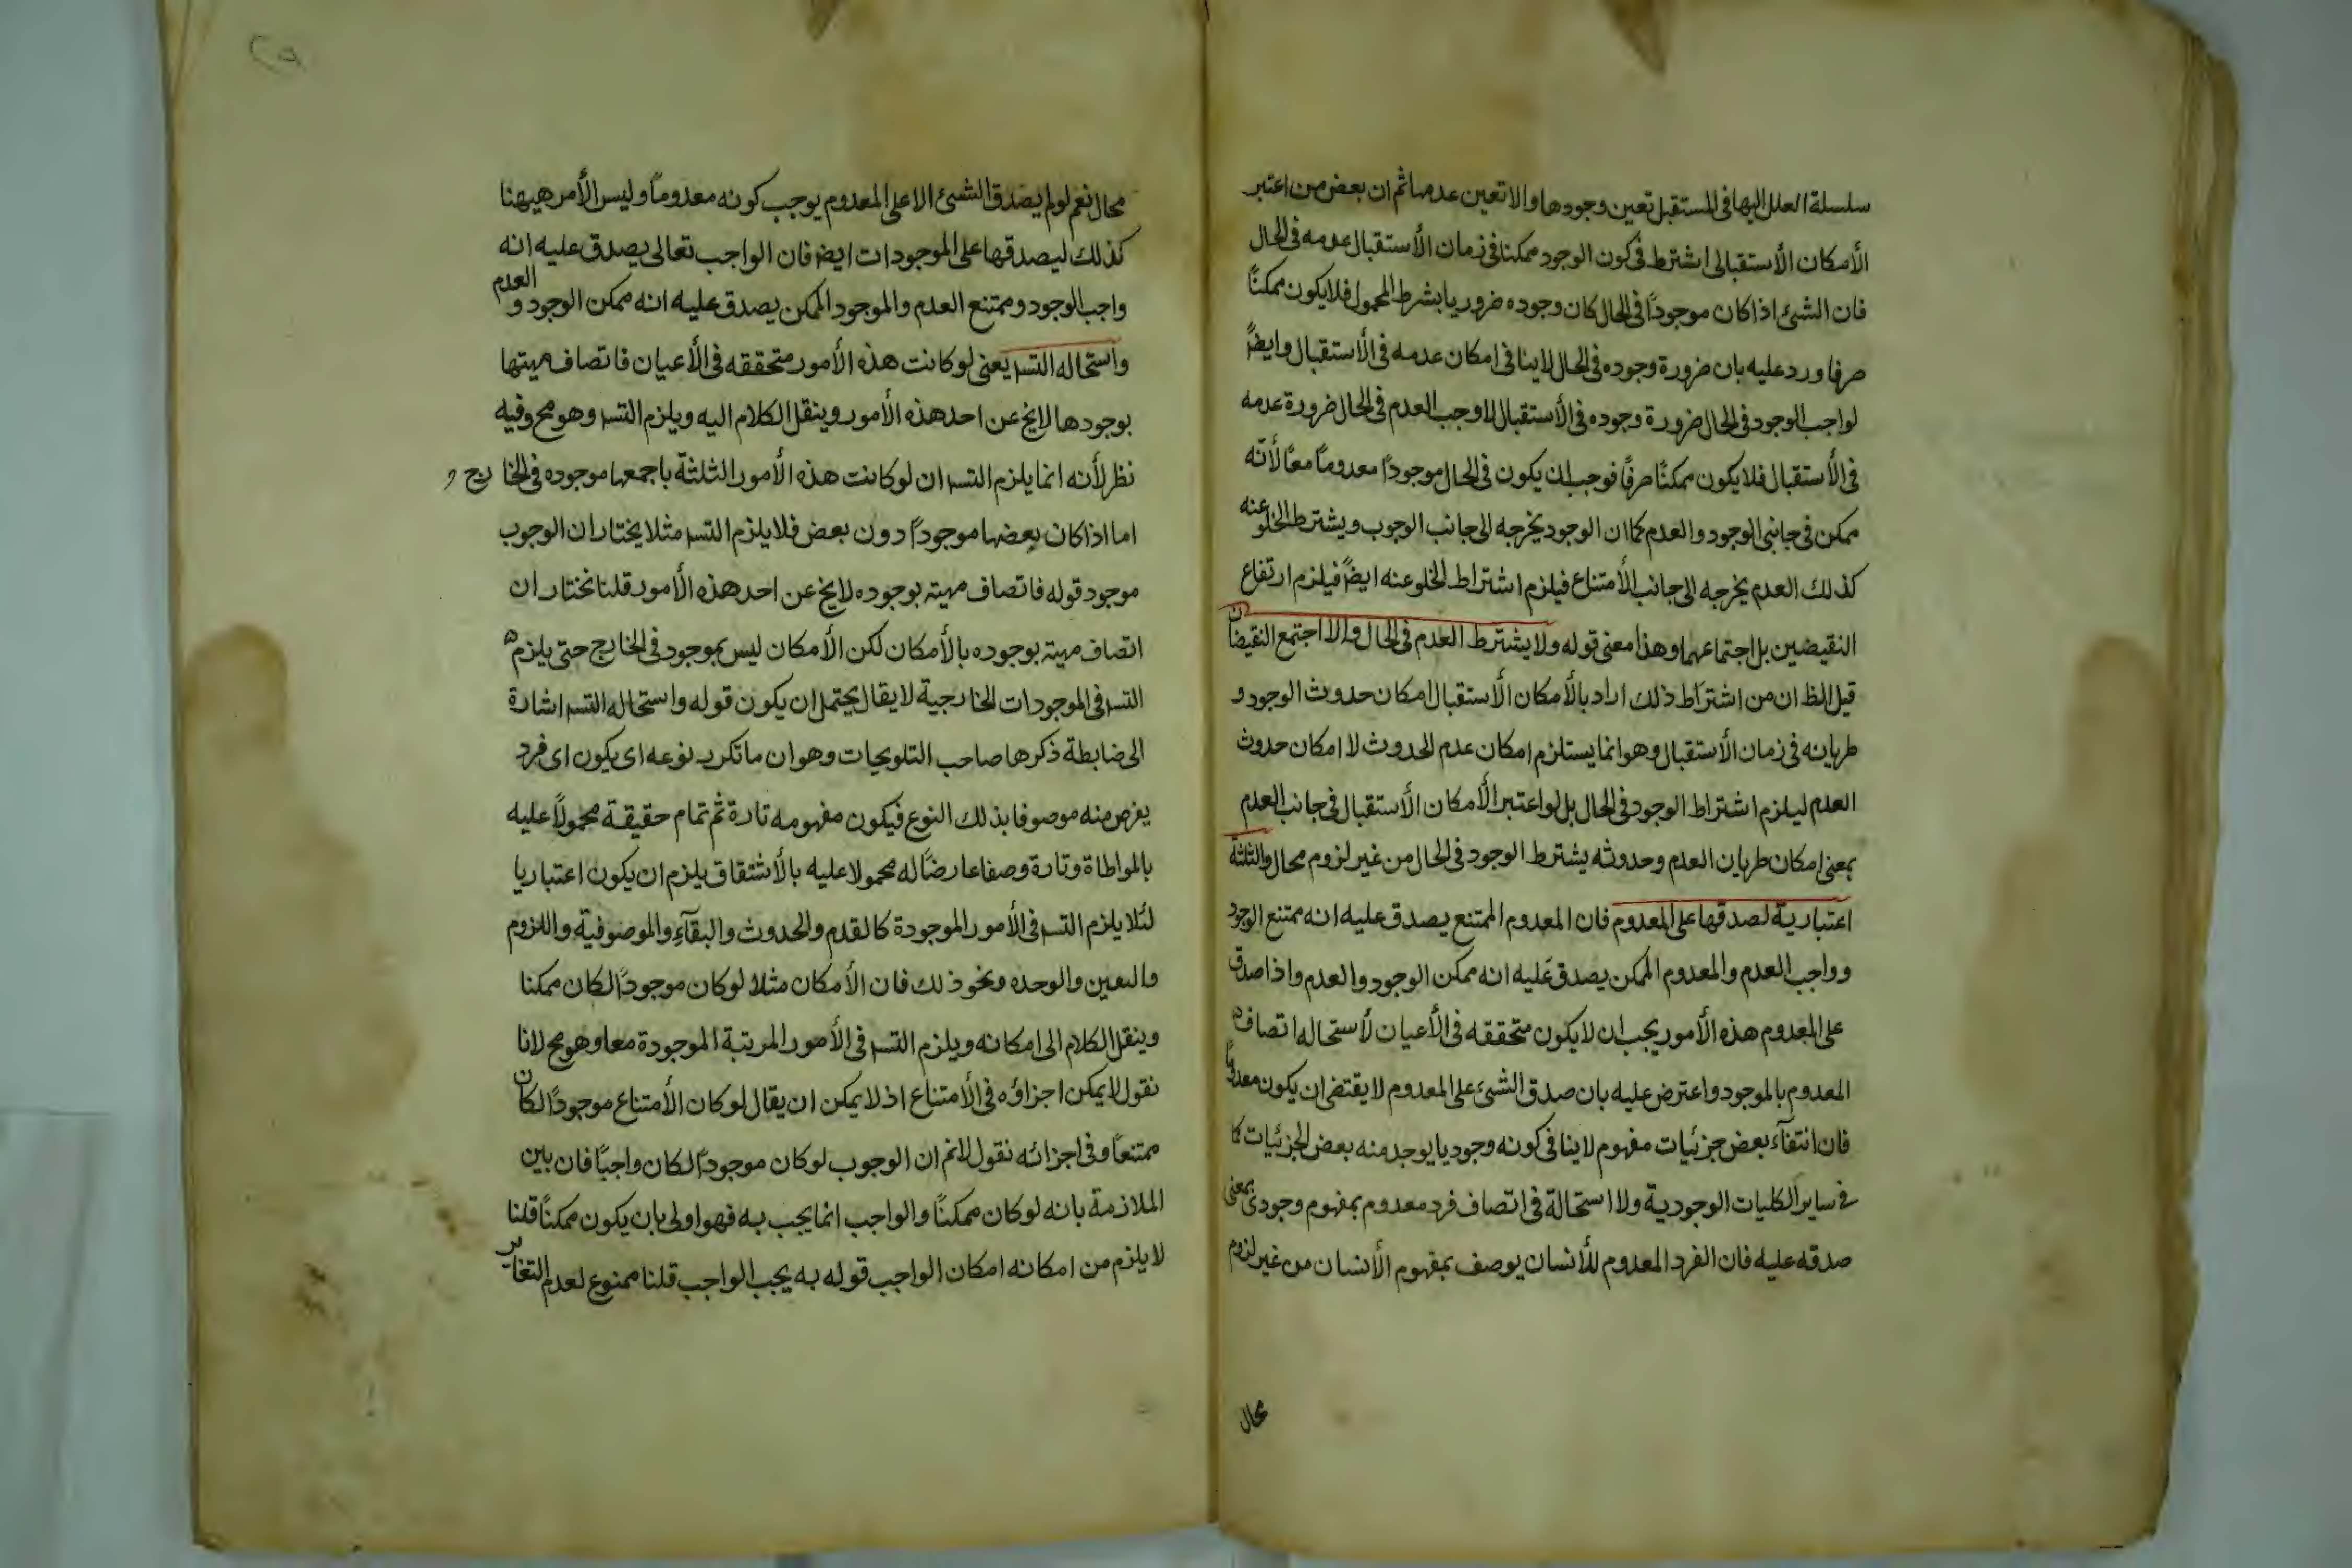 سلسلة العلل اليها فى المستقبل تعين وجودها والا تعين عدمها ثم ان بعض من اعتبر
الأمكان الأستقبالى اشترط فى كون الوجود ممكنا فى زمان الأستقبال عدمه فى الحال
فان الشئ اذا كان موجودًا فى الحال كان وجوده ضروريا بشرط المحمول فلا يكون ممكنًا
صرفا ورد عليه بان ضرورة وجوده فى الحال لا ينافى امكان عدمه فى الأستقبال وايضًا
لو اجب الوجود فى الحال ضرورة وجوده فى الأستقبال لاوجب العدم فى الحال ضرورة عدمه
فى الأستقبال فلا يكون ممكنًا صرفًا فوجب ان يكون فى الحال موجودًا معدومًا معًا لأنّه
ممكن فى جانبى الوجود والعدم كما ان الوجود يخرجه الى جانب الوجوب ويشترط الخلو عنه
كذلك العدم يخرجه الى جانب الأمتناع فيلزم اشتراط الخلو عنه ايضًا فيلزم ارتفاع
النقيضين بل اجتماعهما وهذا معنى قوله ولا يشترط العدم فى الحال والا اجتمع النقيضان
قيل الظ ان من اشتراط ذلك اراد بالأمكان الأستقبال امكان حدوث الوجود و
طريانه فى زمان الأستقبال وهو انما يستلزم امكان عدم الحدوث لا امكان حدوث
العدم ليلزم اشتراط الوجود فى الحال بل لو اعتبر الأمكان الأستقبال فى جانب العدم
بمعنى امكان طريان العدم وحدوثه يشترط الوجود فى الحال من غير لزوم محال والثلثة
اعتبارية لصدقها على المعدوم فان المعدوم الممتنع يصدق عليه انه ممتنع الوجود
وواجب العدم والمعدوم الممكن يصدق عليه انه ممكن الوجود والعدم واذا صدق
على المعدوم هذه الأمور يجب ان لا يكون متحققه فى الأعيان لأستحاله اتصاف
المعدوم بالموجود واعترض عليه بان صدق الشئ على المعدوم لا يقتضى ان يكون معدومًا
فان انتفآء بعض جزئيات مفهوم لا ينافى كونه وجوديا يوجد منه بعض الجزئيات كا
فى ساير الكليات الوجودية ولا استحالة فى اتصاف فرد معدوم بمفهوم وجودى بمعنى
صدقه عليه فان الفرد المعدوم للأنسان يوصف بمفهوم الأنسان من غير لزوم
محال
محال نعم لو لم يصدق الشئ الا على المعدوم يوجب كونه معدومًا وليس الأمر هيهنا
كذلك ليصدقها على الموجودات ايضا فان الواجب تعالى يصدق عليه انه
واجب الوجود وممتنع العدم والموجود الممكن يصدق عليه انه ممكن الوجود و العدم
واستحاله التسـ يعنى لو كانت هذه الأمور متحققه فى الأعيان فاتصاف مهيتها
بوجودها لا يخ عن احد هذه الأمور وينقل الكلام اليه ويلزم التسـ وهو مح وفيه
نظر لأنه انما يلزم التسـ ان لو كانت هذه الأمور الثلثة باجمعها موجوده فى الخارج و
اما اذا كان بعضها موجودًا دون بعض فلا يلزم التسـ مثلا يختار ان الوجوب
موجود قوله فاتصاف مهيته بوجوده لا يخ عن احد هذه الأمور قلنا نختار ان
اتصاف مهيته بوجوده بالأمكان لكن الأمكان ليس بموجود فى الخارج حتى يلزم
التسـ فى الموجودات الخارجية لا يقال يحتمل ان يكون قوله واستحاله التسـ اشارة
الى ضابطة ذكرها صاحب التلويحات وهو ان ما تكرر نوعه اى يكون اى فرد
يفرض منه موصوفا بذلك النوع فيكون مفهومه تارة ثم تمام حقيقة محمولًا عليه
بالمواطاة وتارة وصفا عارضًا له محمولا عليه بالأشتقاق يلزم ان يكون اعتباريا
لئلا يلزم التسـ فى الأمور الموجودة كالقدم والحدوث والبقآء والموصوفية واللزوم
والتعين والوحده ونحو ذلك فان الأمكان مثلا لو كان موجودًا لكان ممكنا
وينقل الكلام الى امكانه ويلزم التسـ فى الأمور المرتبة الموجودة معا وهو مح لانا
نقول لا يمكن اجزاؤه فى الأمتناع اذ لا يمكن ان يقال لو كان الأمتناع موجودًا لكان
ممتنعًا وفى اجزائه نقول لانم ان الوجوب لو كان موجودًا لكان واجبًا فان بين
الملازمة بانه لو كان ممكنًا والواجب انما يجب به فهو اولى بان يكون ممكنًا قلنا
لا يلزم من امكانه امكان الواجب قوله به يجب الواجب قلنا ممنوع لعدم التغاير